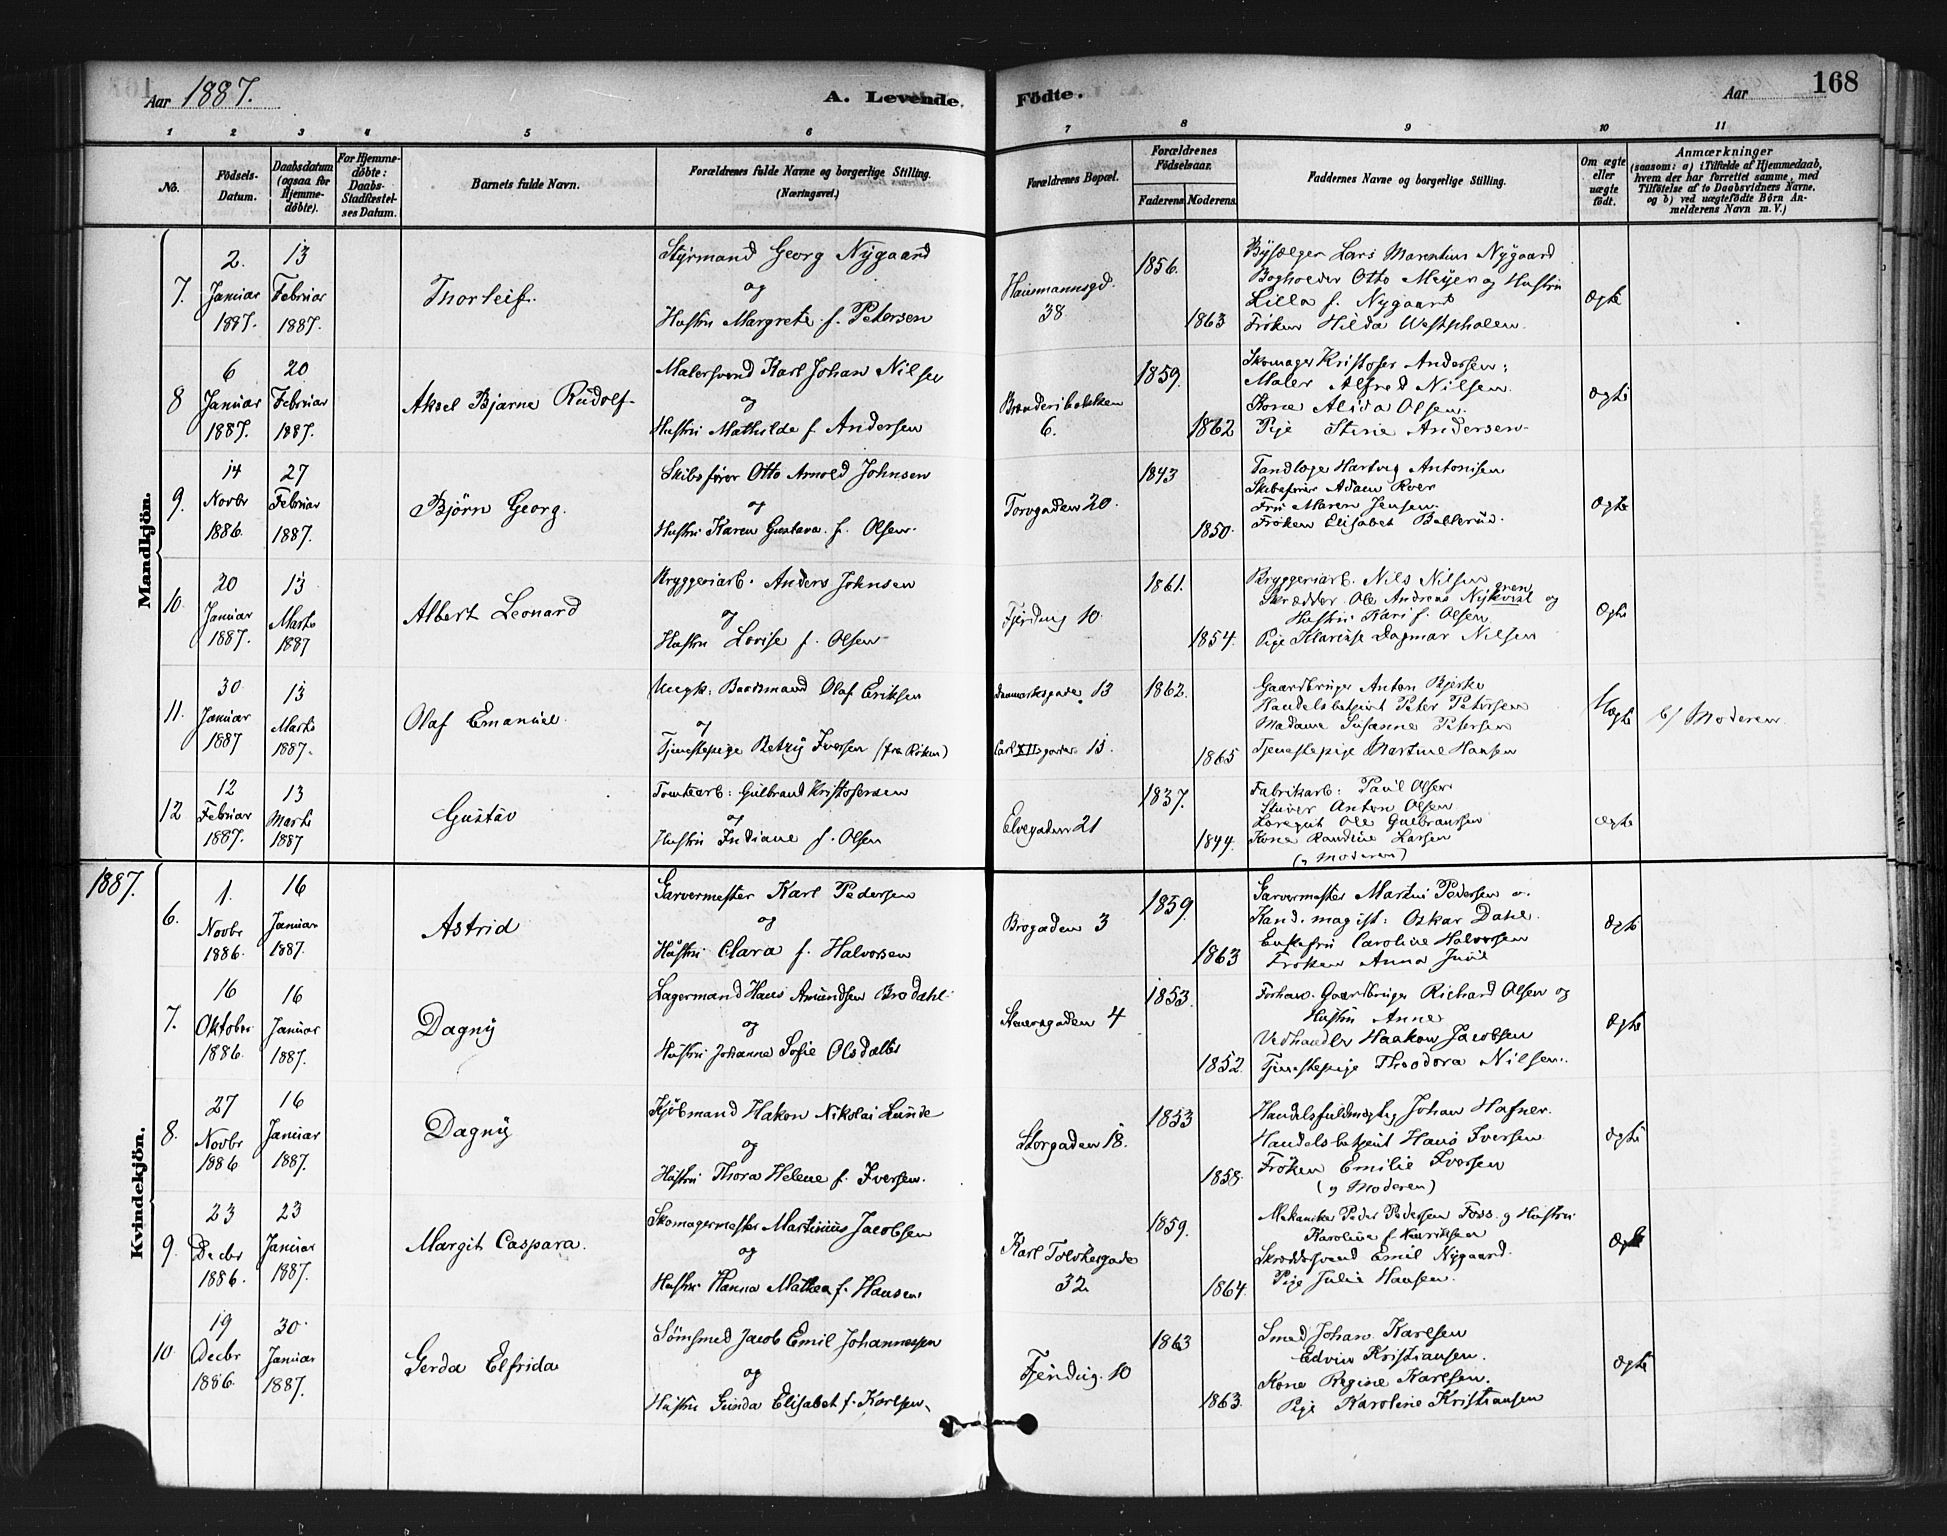 Aar 1887.
A. Levende Fødte.
Aar
168
1 2 3 4 5 6 7 8 9 10 11
No.
Fødsels-Datum.
Daabsdatum (ogsaa for Hjemme-døbte).
For Hjemme-døbte: Daabs-Stadfæstel-ses Datum.
Barnets fulde Navn.
Forældrenes fulde Navne og borgerlige Stilling. (Næringsvei.)
Forældrenes Bopæl.
Forældrenes Fødselsaar.
Faderens. Moderens.
Faddernes Navne og borgerlige Stilling.
Om ægte eller uægte født.
Anmærkninger
(saasom: a) i Tilfælde af Hjemmedaab, hvem der har forrettet samme, med Tilføielse af to Daabsvidners Navne, og b) ved uægtefødte Børn Anmelderens Navn m. V.)
Mandkjön.
7. 2. Januar 1887. 13 Februar 1887.
Thorleif.
Styrmand Georg Nygaard
og
Hustru Margrete f. Petersen
Hausmannsgd. 38.
1856. 1863
Bysælger Lars Marentius Nygaard
Bogholder Otto Meyer og Hustru
Lilla f. Nygaard
Frøken Hilda Westphalen.
Ægte
8 6 Januar 1887. 20 Februar 1887.
Aksel Bjarne Rudolf.
Malersvend Karl Johan Nilsen
og
Hustru Mathilde f. Andersen
6.
1859. 1862
Skomager Kristofer Andersen;
Maler Alfred Nilsen.
Kone Alida Olsen.
Pige Stine Andersen
Ægte
9. 14 Novbr 1886. 27 Februar 1887.
Bjørn Georg.
Skibsfører Otto Arnold Johnsen
og
Hustru Karen Gustava f. Olsen.
Torvgaden 20.
1843 1850.
Tandlæge Hartvig Antonisen
Skibsfører Adam Roer
Fru Maren Jensen.
Frøken Elisabet Ballerud.
Ægte
10. 20 Januar 1887. 13 Marts 1887
Albert Leonard
Bryggeriarb. Anders Johnsen
og
Hustru Lovise f. Olsen
Fjerding 10.
1861. 1854.
Bryggeriarb. Nils Nilsen
Skrædder Ole Andreas og
Hustru Kari f. Olsen
Pige Dagmar Nilsen
Ægte
11. 30. Januar 1887 13 Marts 1887.
Olaf Emanuel.
Ungk. Baadsmand Olaf Eriksen
og
Tjenestepige Betzy Iversen (fra Røken)
Danmarksgade 13
Carl XII gade 13.
1862. 1865
Gaardbruger Anton Bjerke
Handelsbetjent Peter Petersen
Madame Susanne Petersen
Tjenestepige Martine Hansen
Uægte
b/ Moderen.
12 12 Februar 1887. 13 Marts 1887
Gustav
Tomtearb: Gulbrand Kristofersen
og
Hustru Indiane f. Olsen
Elvegaden 21
1837. 1844.
Fabrikarb: Paul Olsen
Anton Olsen
Ole Gulbransen
Kone Randine Larsen
(og Moderen)
Ægte
1887.
Kvindekjön.
6. 1. Novbr 1886. 16 Januar 1887.
Astrid
Garvermester Karl Pedersen
og
Hustru Clara f. Halvorsen
Brogaden 3
1859. 1863
Garvermester Martin Pedersen
Kand. magist: Oskar Dahl.
Enkefru Caroline Halvorsen
Frøken Anna Juul
Ægte
7. 16 Oktober 1886. 16 Januar 1887.
Dagny
Lagermand Hans Amundsen Brodahl
og
Hustru Johanne Sofie Olsdatter
4
1853. 1852.
Forhen. Gaardbruger Richard Olsen og
Hustru Anne
Vedhandler Haakon Jacobsen
Tjenestepige Theodora Nilsen.
Ægte
8. 27 Novbr 1886 16 Januar 1887.
Dagny
Kjøbmand Hakon Nikolai Lunde
og
Hustru Thora Helene f. Iversen.
Storgaden 18.
1853 1858.
Handelsfuldmægtig Johan Hafner.
Handelsbetjent Hans Iversen
Frøken Emilie Iversen
(og Moderen)
Ægte
9. 23 Decbr 1886. 23 Januar 1887.
Margit Caspara.
Skomagermester Martinius Jacobsen
og
Hustru Hanna Mathea f. Hansen
Karl 32
1859. 1864.
Mekaniker Peder Pedersen Foss og Hustru
Karoline f. Henriksen
Skræddersvend Emil Nygaard.
Pige Julie Hansen.
Ægte
10 19 Decbr 1886. 30. Januar 1887.
Gerda Elfrida
Sømsmed Jacob Emil Johannessen
og
Hustru Gunda Elisabet f. Karlsen.
Fjerding. 10
1863 1863.
Smed Johan Karlsen
Edvin Kristiansen.
Kone Regine Karlsen.
Pige Karoline Kristiansen
Ægte